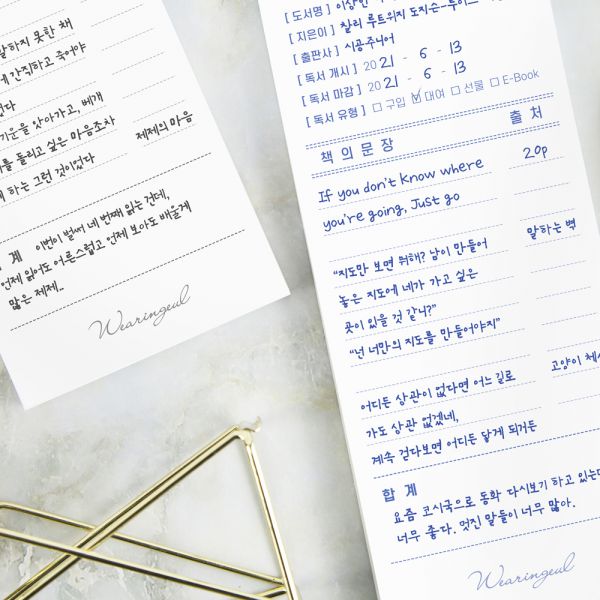 말하지 못한 채
간직하고 죽어야
기운을 앗아가고, 베개
돌리고 싶은 마음조차
제제의 마음
하는 그런 것이었다
계 이번이 벌써 네 번째 읽는 건데,
언제 읽어도 어른스럽고 언제 보아도 배울게
많은 제제..
Wearingeul
[ 도서명 ]
[ 지은이 ] 찰리 루트위지 도지슨-루이스
[ 출판사 ] 시공주니어
[ 독서 개시 ] 2021 - 6 - 13
[ 독서 마감 ] 2021 - 6 - 13
[ 독서 유형 ] □ 구입 ☑ 대여 □ 선물 □ E-Book
책 의 문 장 출 처
If you don't know where 20p
you're going, Just go
"지도만 보면 뭐해? 남이 만들어 말하는 벽
놓은 지도에 네가 가고 싶은
곳이 있을 것 같니?"
"넌 너만의 지도를 만들어야지"
어디든 상관이 없다면 어느 길로 고양이
가도 상관 없겠네,
계속 걷다보면 어디든 닿게 되거든
합 계
요즘 코시국으로 동화 다시보기 하고 있는데
너무 좋다. 멋진 말들이 너무 많아.
Wearingeul